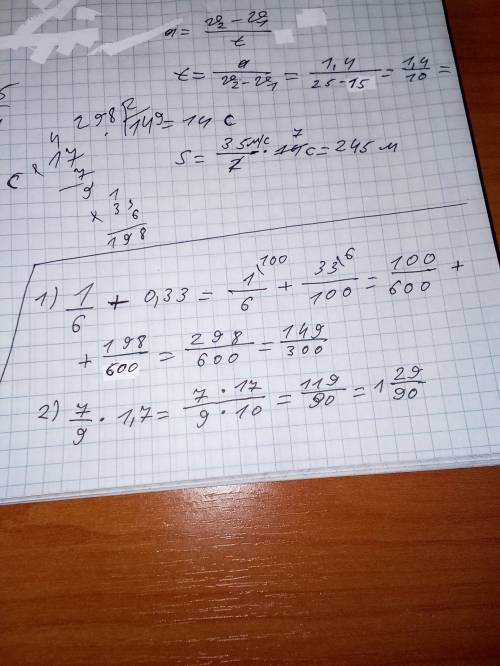 a = (v₂ - v₁)/t
t = a/(v₂ - v₁) = 1,4/(25-15) = 1,4/10 =
= 14 с
S = 35м/с/2 · 14с = 245 м
298 | 2
149
4
17
7
9
с
1
× 33
6
198
1) 1/6 + 0,33 = 1/6 \100 + 33/100 \6 = 100/600 +
+ 198/600 = 298/600 = 149/300
2) 7/9 · 1,7 = (7 · 17)/(9 · 10) = 119/90 = 1 29/90